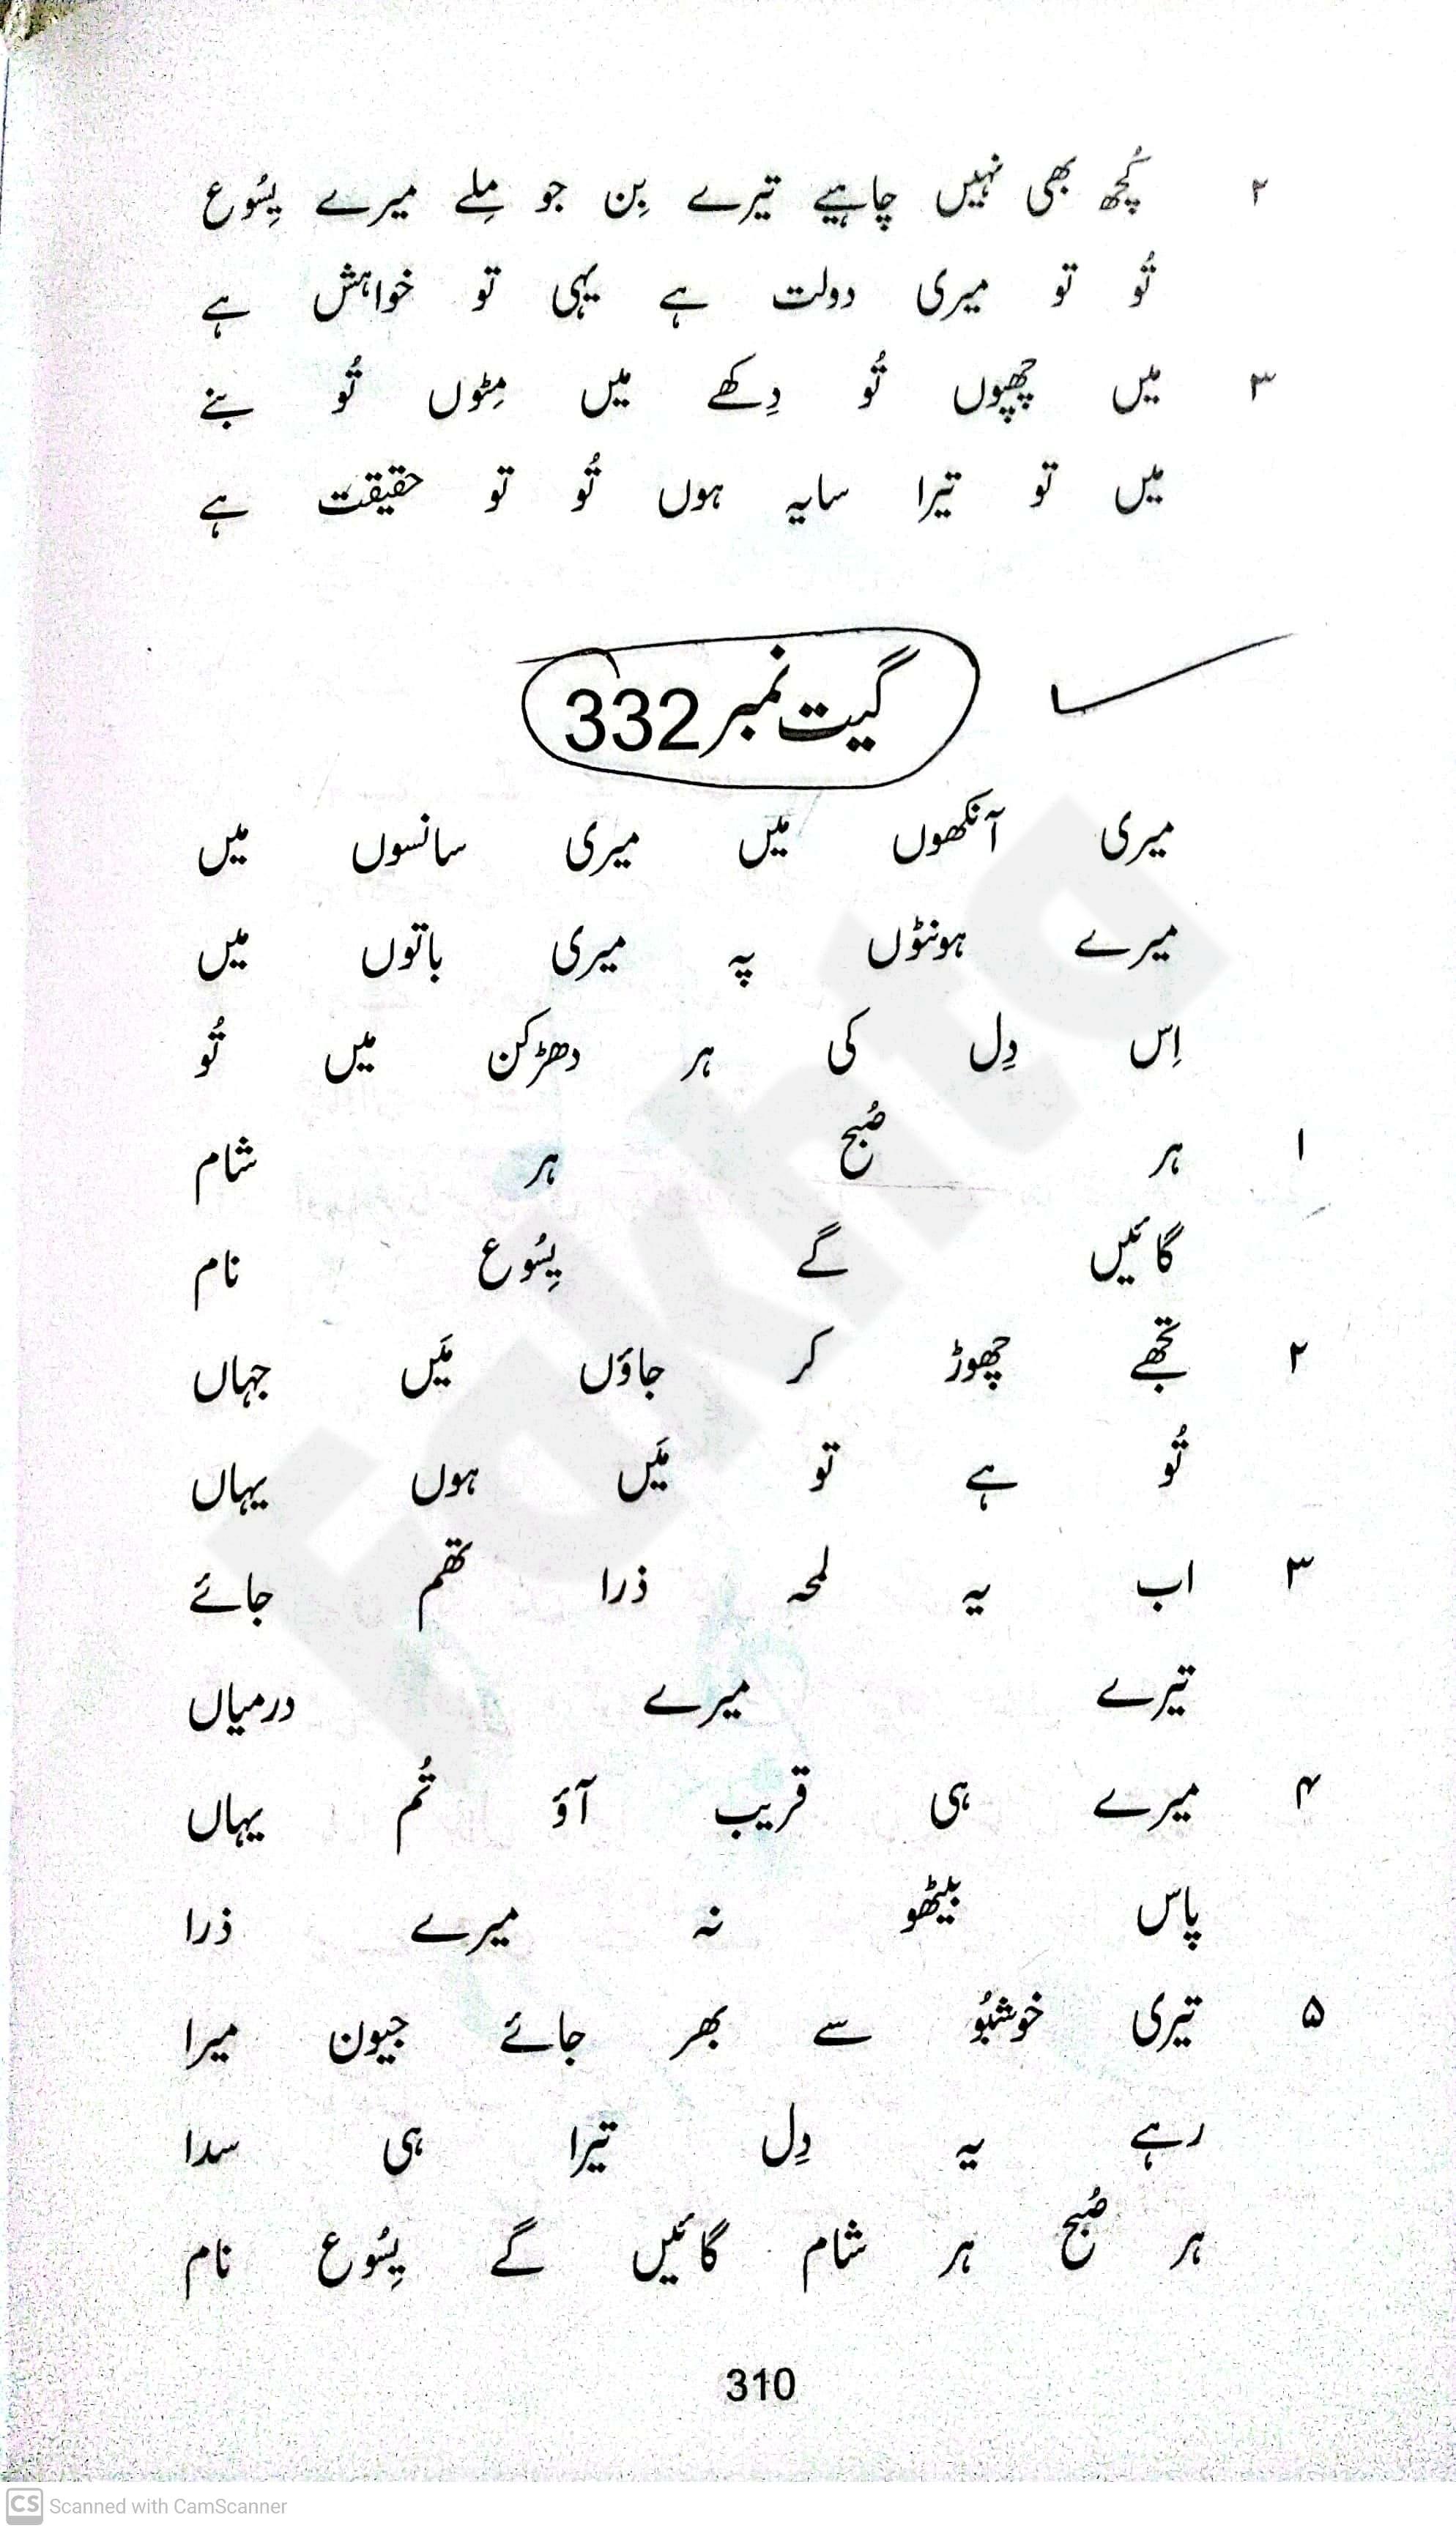 ۲ کُچھ بھی نہیں چاہیے تیرے بِن جو مِلے میرے یِسُوع
تُو تو میری دولت ہے یہی تو خواہش ہے
۳ میں چھپوں تُو دِکھے میں مِٹوں تُو بنے
میں تو تیرا سایہ ہوں تُو تو حقیقت ہے
گیت نمبر 332
میری آنکھوں میں میری سانسوں میں
میرے ہونٹوں پہ میری باتوں میں
اِس دِل کی ہر دھڑکن میں تُو
۱ ہر صُبح ہر شام
گائیں گے یِسُوع نام
۲ تجھے چھوڑ کر جاؤں مَیں جہاں
تُو ہے تو مَیں ہوں یہاں
۳ اب یہ لمحہ ذرا تھم جائے
تیرے میرے درمیاں
۴ میرے ہی قریب آؤ تُم یہاں
پاس بیٹھو نہ میرے ذرا
۵ تیری خوشبُو سے بھر جائے جیون میرا
رہے یہ دِل تیرا ہی سدا
ہر صُبح ہر شام گائیں گے یِسُوع نام
310
Fakhta
CS Scanned with CamScanner